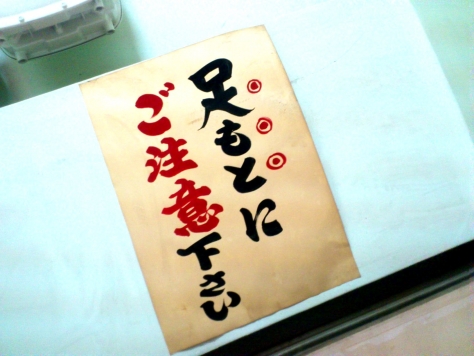 足もとに
ご注意下さい